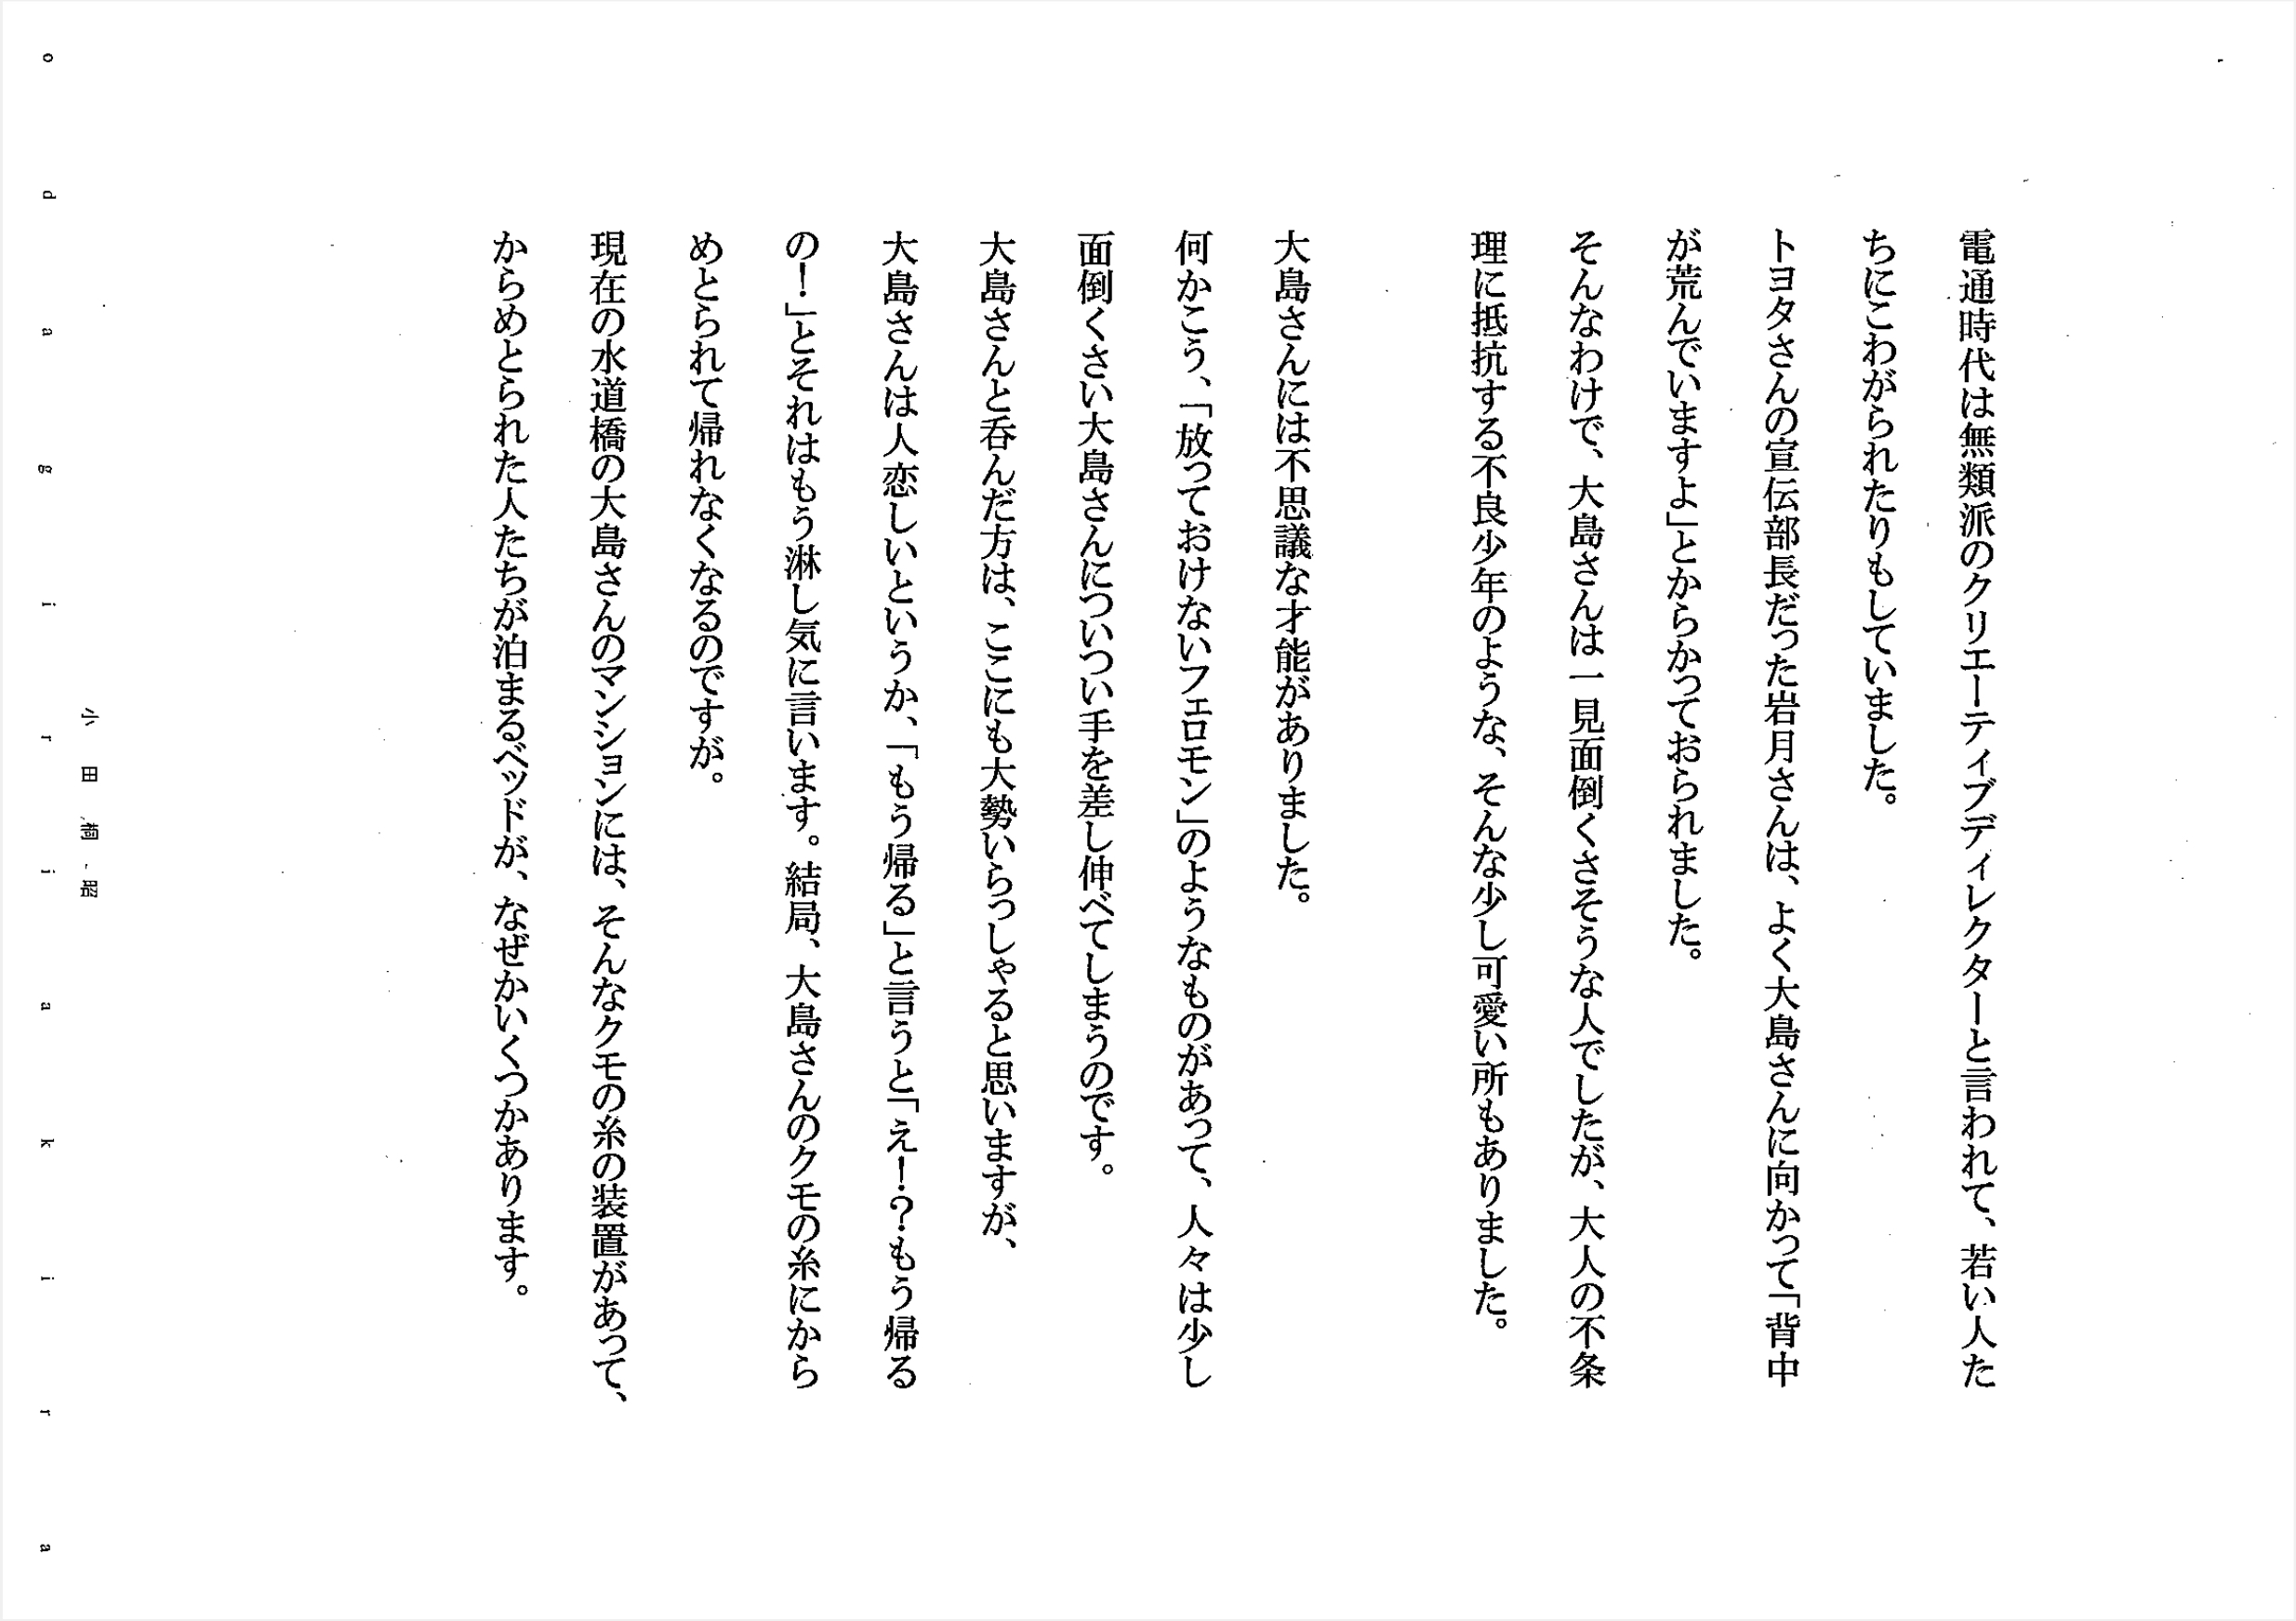 電通時代は無類派のクリエーティブディレクターと言われて、若い人た
ちにこわがられたりもしていました。
トヨタさんの宣伝部長だった岩月さんは、よく大島さんに向かって「背中
が荒んでいますよ」とからかっておられました。
そんなわけで、大島さんは一見面倒くさそうな人でしたが、大人の不条
理に抵抗する不良少年のような、そんな少し可愛い所もありました。
大島さんには不思議な才能がありました。
何かこう、「放っておけないフェロモン」のようなものがあって、人々は少し
面倒くさい大島さんについつい手を差し伸べてしまうのです。
大島さんと呑んだ方は、ここにも大勢いらっしゃると思いますが、
大島さんは人恋しいというか、「もう帰る」と言うと「え！？もう帰る
の！」とそれはもう淋し気に言います。結局、大島さんのクモの糸にから
めとられて帰れなくなるのですが。
現在の水道橋の大島さんのマンションには、そんなクモの糸の装置があって、
からめとられた人たちが泊まるベッドが、なぜかいくつかあります。
小田桐昭
odagiri akira